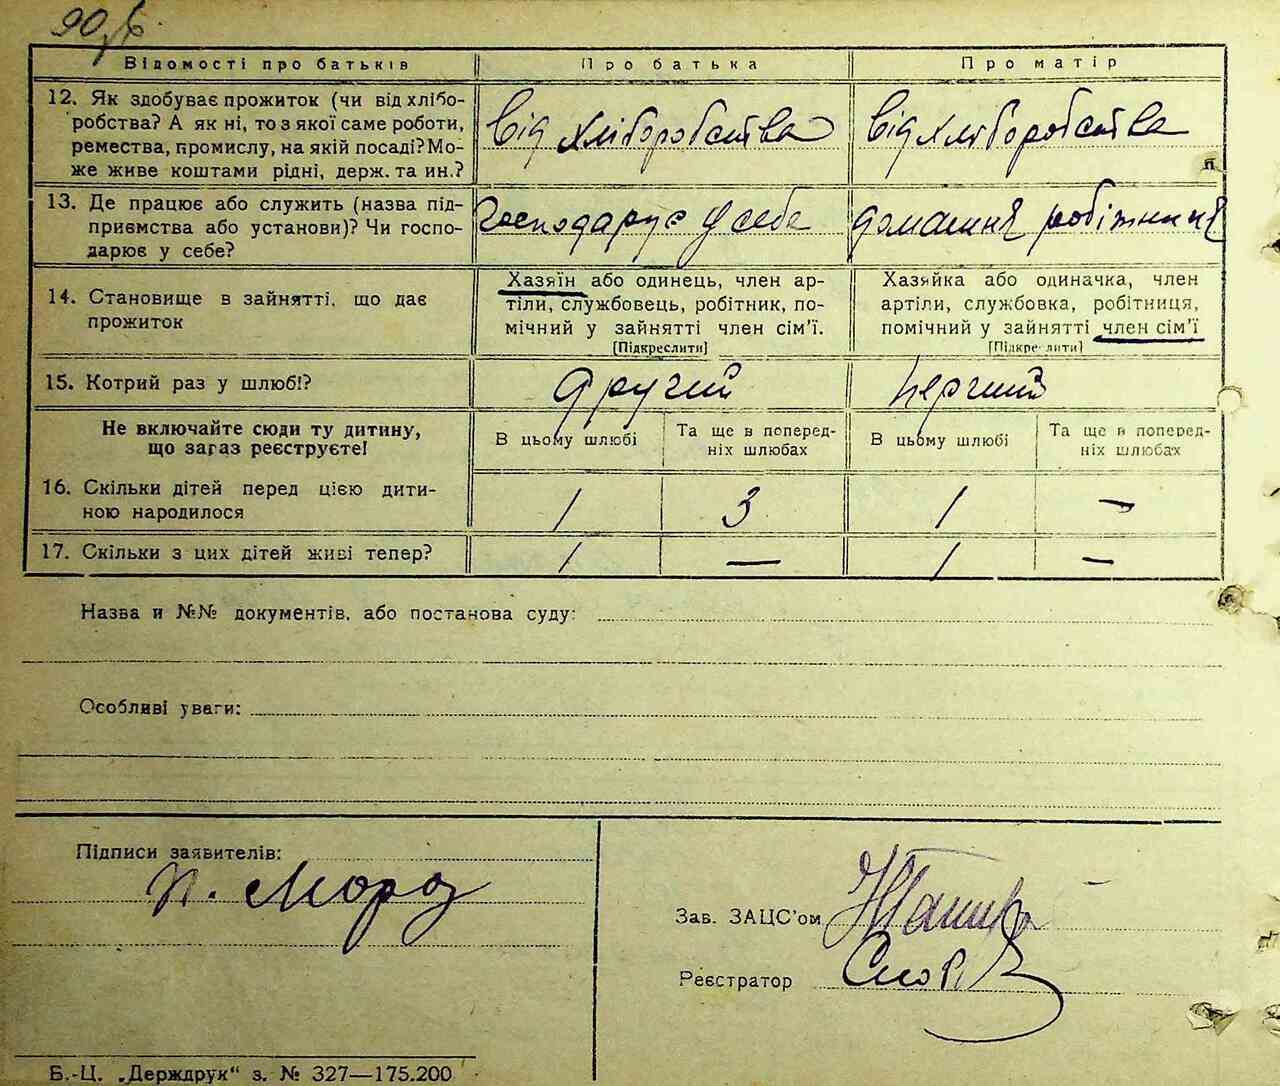 Відомості про батьків Про батька Про матір
12. Як здобуває прожиток (чи від хлібо-
робства? А як ні, то з якої саме роботи,
ремества, промислу, на якій посаді? Мо-
же живе коштами рідні, держ. та ин.?
від хліборобства від хліборобства
13. Де працює або служить (назва під-
приємства або установи)? Чи госпо-
дарює у себе?
Господарує у себе домашня робітниця
14. Становище в зайнятті, що дає
прожиток
Хазяїн або одинець, член ар-
тіли, службовець, робітник, по-
мічний у зайнятті член сім'ї.
[Підкреслити]
Хазяйка або одиначка, член
артіли, службовка, робітниця,
помічний у зайнятті член сім'ї
[Підкреслити]
15. Котрий раз у шлюбі? другий перший
Не включайте сюди ту дитину,
що зараз реєструєте!
В цьому шлюбі Та ще в поперед-
ніх шлюбах В цьому шлюбі Та ще в поперед-
ніх шлюбах
16. Скільки дітей перед цією дити-
ною народилося
1 3 1 —
17. Скільки з цих дітей живі тепер? 1 — 1 —
Назва и №№ документів, або постанова суду:
Особливі уваги:
Підписи заявителів:
П. Мороз
Зав. ЗАЦС'ом
Реєстратор
Б.-Ц. „Держдрук“ з. № 327—175.200